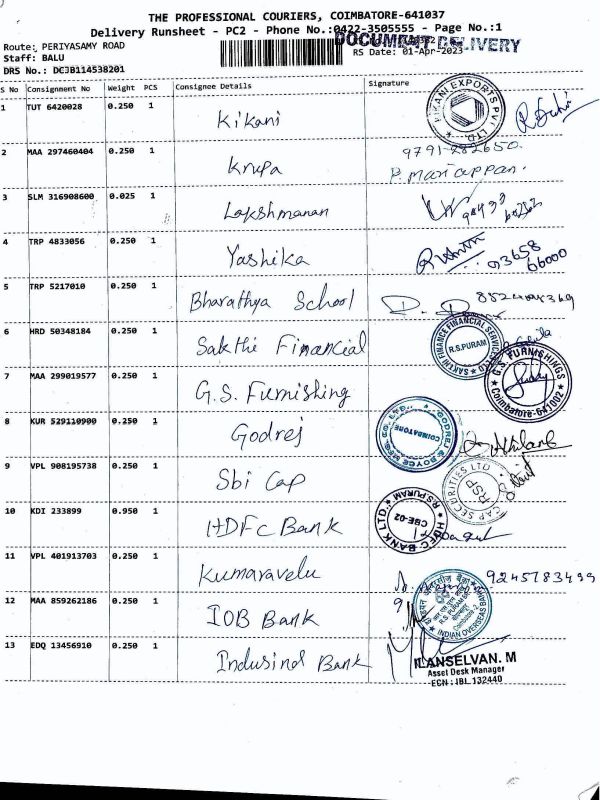 THE PROFESSIONAL COURIERS, COIMBATORE-641037
Delivery Runsheet - PC2 - Phone No.:0422-3505555 - Page No.:1
DOCUMENT DELIVERY
Route: PERIYASAMY ROAD
Staff: BALU
RS Date: 01-Apr-2023
DRS No.: DCJB114538201
S No Consignment No Weight PCS Consignee Details Signature
1 TUT 6420028 0.250 1 Kikani
KIKANI EXPORTS PVT LTD.
2 MAA 297460404 0.250 1 Krupa
P. Mariappan.
3 SLM 316908600 0.025 1 Lakshmanan
4 TRP 4833056 0.250 1 Yashika
93658
66000
5 TRP 5217010 0.250 1 Bharathya School
6 HRD 50348184 0.250 1 Sakthi Financial
SAKTHI FINANCE FINANCIAL SERVICES
R.S.PURAM
7 MAA 299019577 0.250 1 G.S. Furnishing
G.S. FURNISHINGS
Coimbatore-641002
8 KUR 529110900 0.250 1 Godrej
GODREJ & BOYCE MFG. CO. LTD.,
COIMBATORE
9 VPL 908195738 0.250 1 Sbi Cap
CAP SECURITIES LTD
RSP
10 KDI 233899 0.950 1 HDFC Bank
HDFC BANK LTD., R.S.PURAM
CBE-02
11 VPL 401913703 0.250 1 Kumaravelu
9245783499
12 MAA 859262186 0.250 1 IOB Bank
INDIAN OVERSEAS BANK
13 EDQ 13456910 0.250 1 Indusind Bank
ILANSELVAN. M
Asset Desk Manager
ECN : IBL 132440